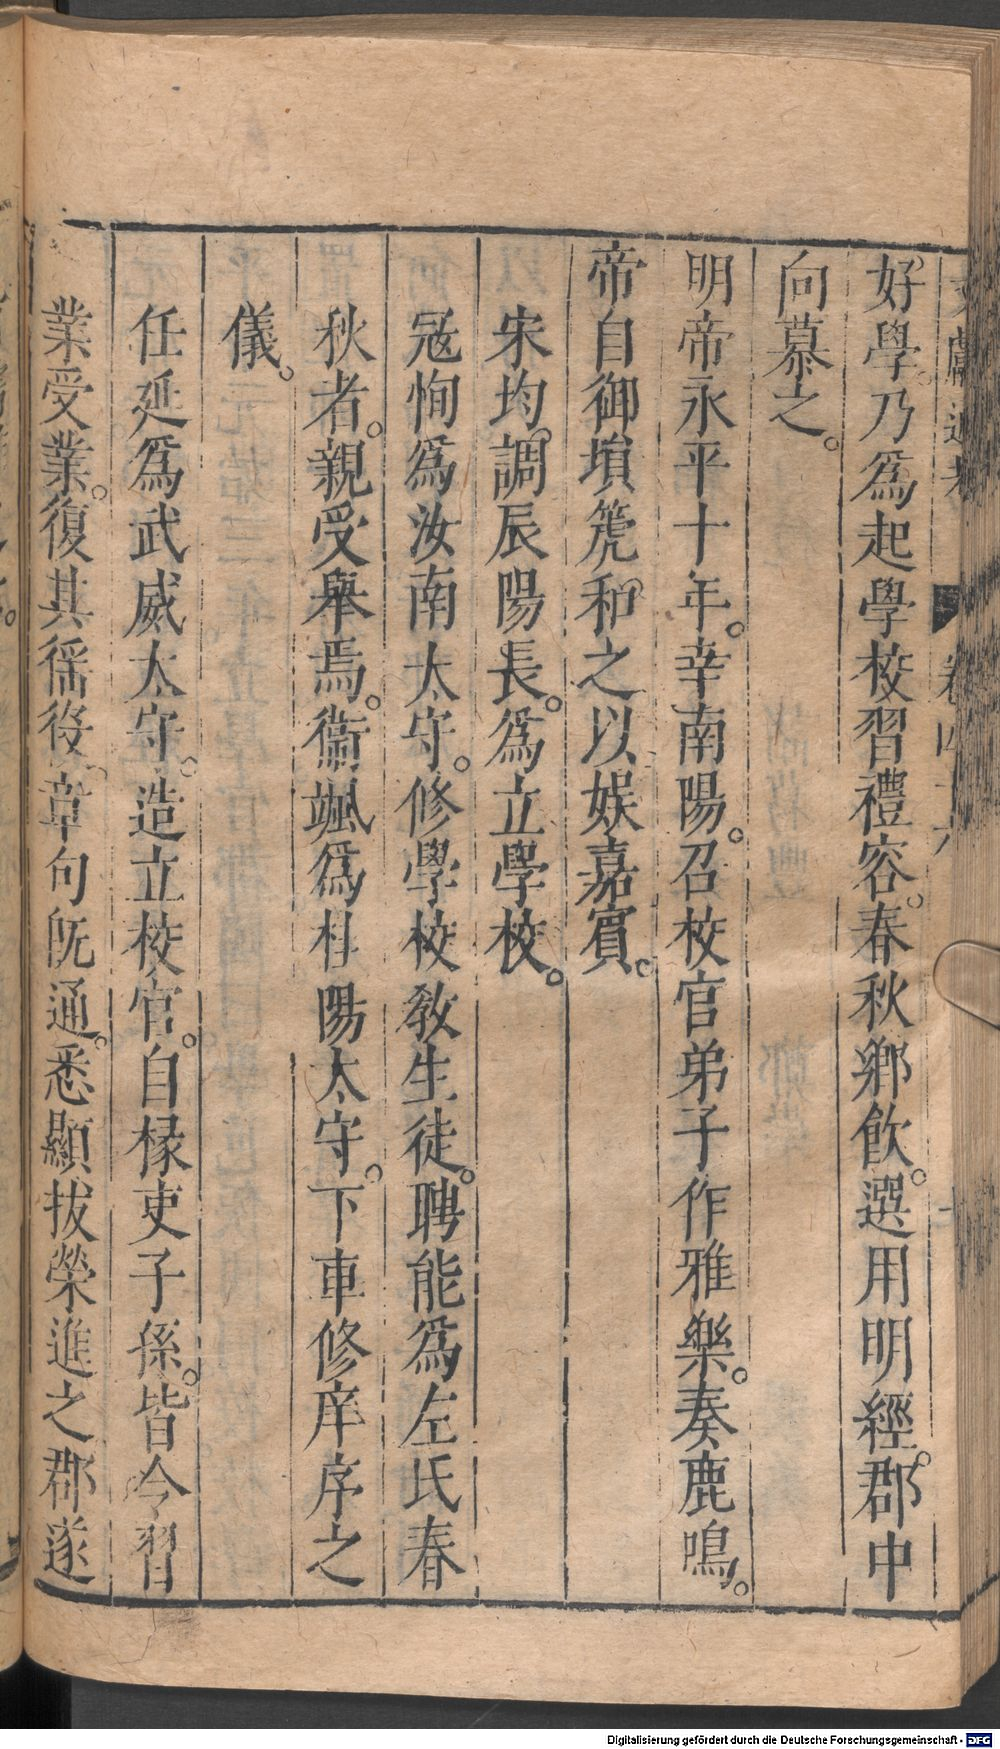 好學。乃爲起學校習禮容。春秋鄉飲。選用明經。郡中
向慕之。
明帝永平十年。幸南陽。召校官弟子作雅樂。奏鹿鳴。
帝自御塤箎和之以娛嘉賓。
宋均調辰陽長。爲立學校。
冦恂爲汝南太守。修學校敎生徒。聘能爲左氏春
秋者。親受舉焉。衞颯爲桂陽太守。下車修庠序之
儀。
任延爲武威太守。造立校官。自椽吏子孫。皆令習
業受業。復其徭役。章句旣通。悉顯拔榮進之郡遂
Digitalisierung gefördert durch die Deutsche Forschungsgemeinschaft - DFG